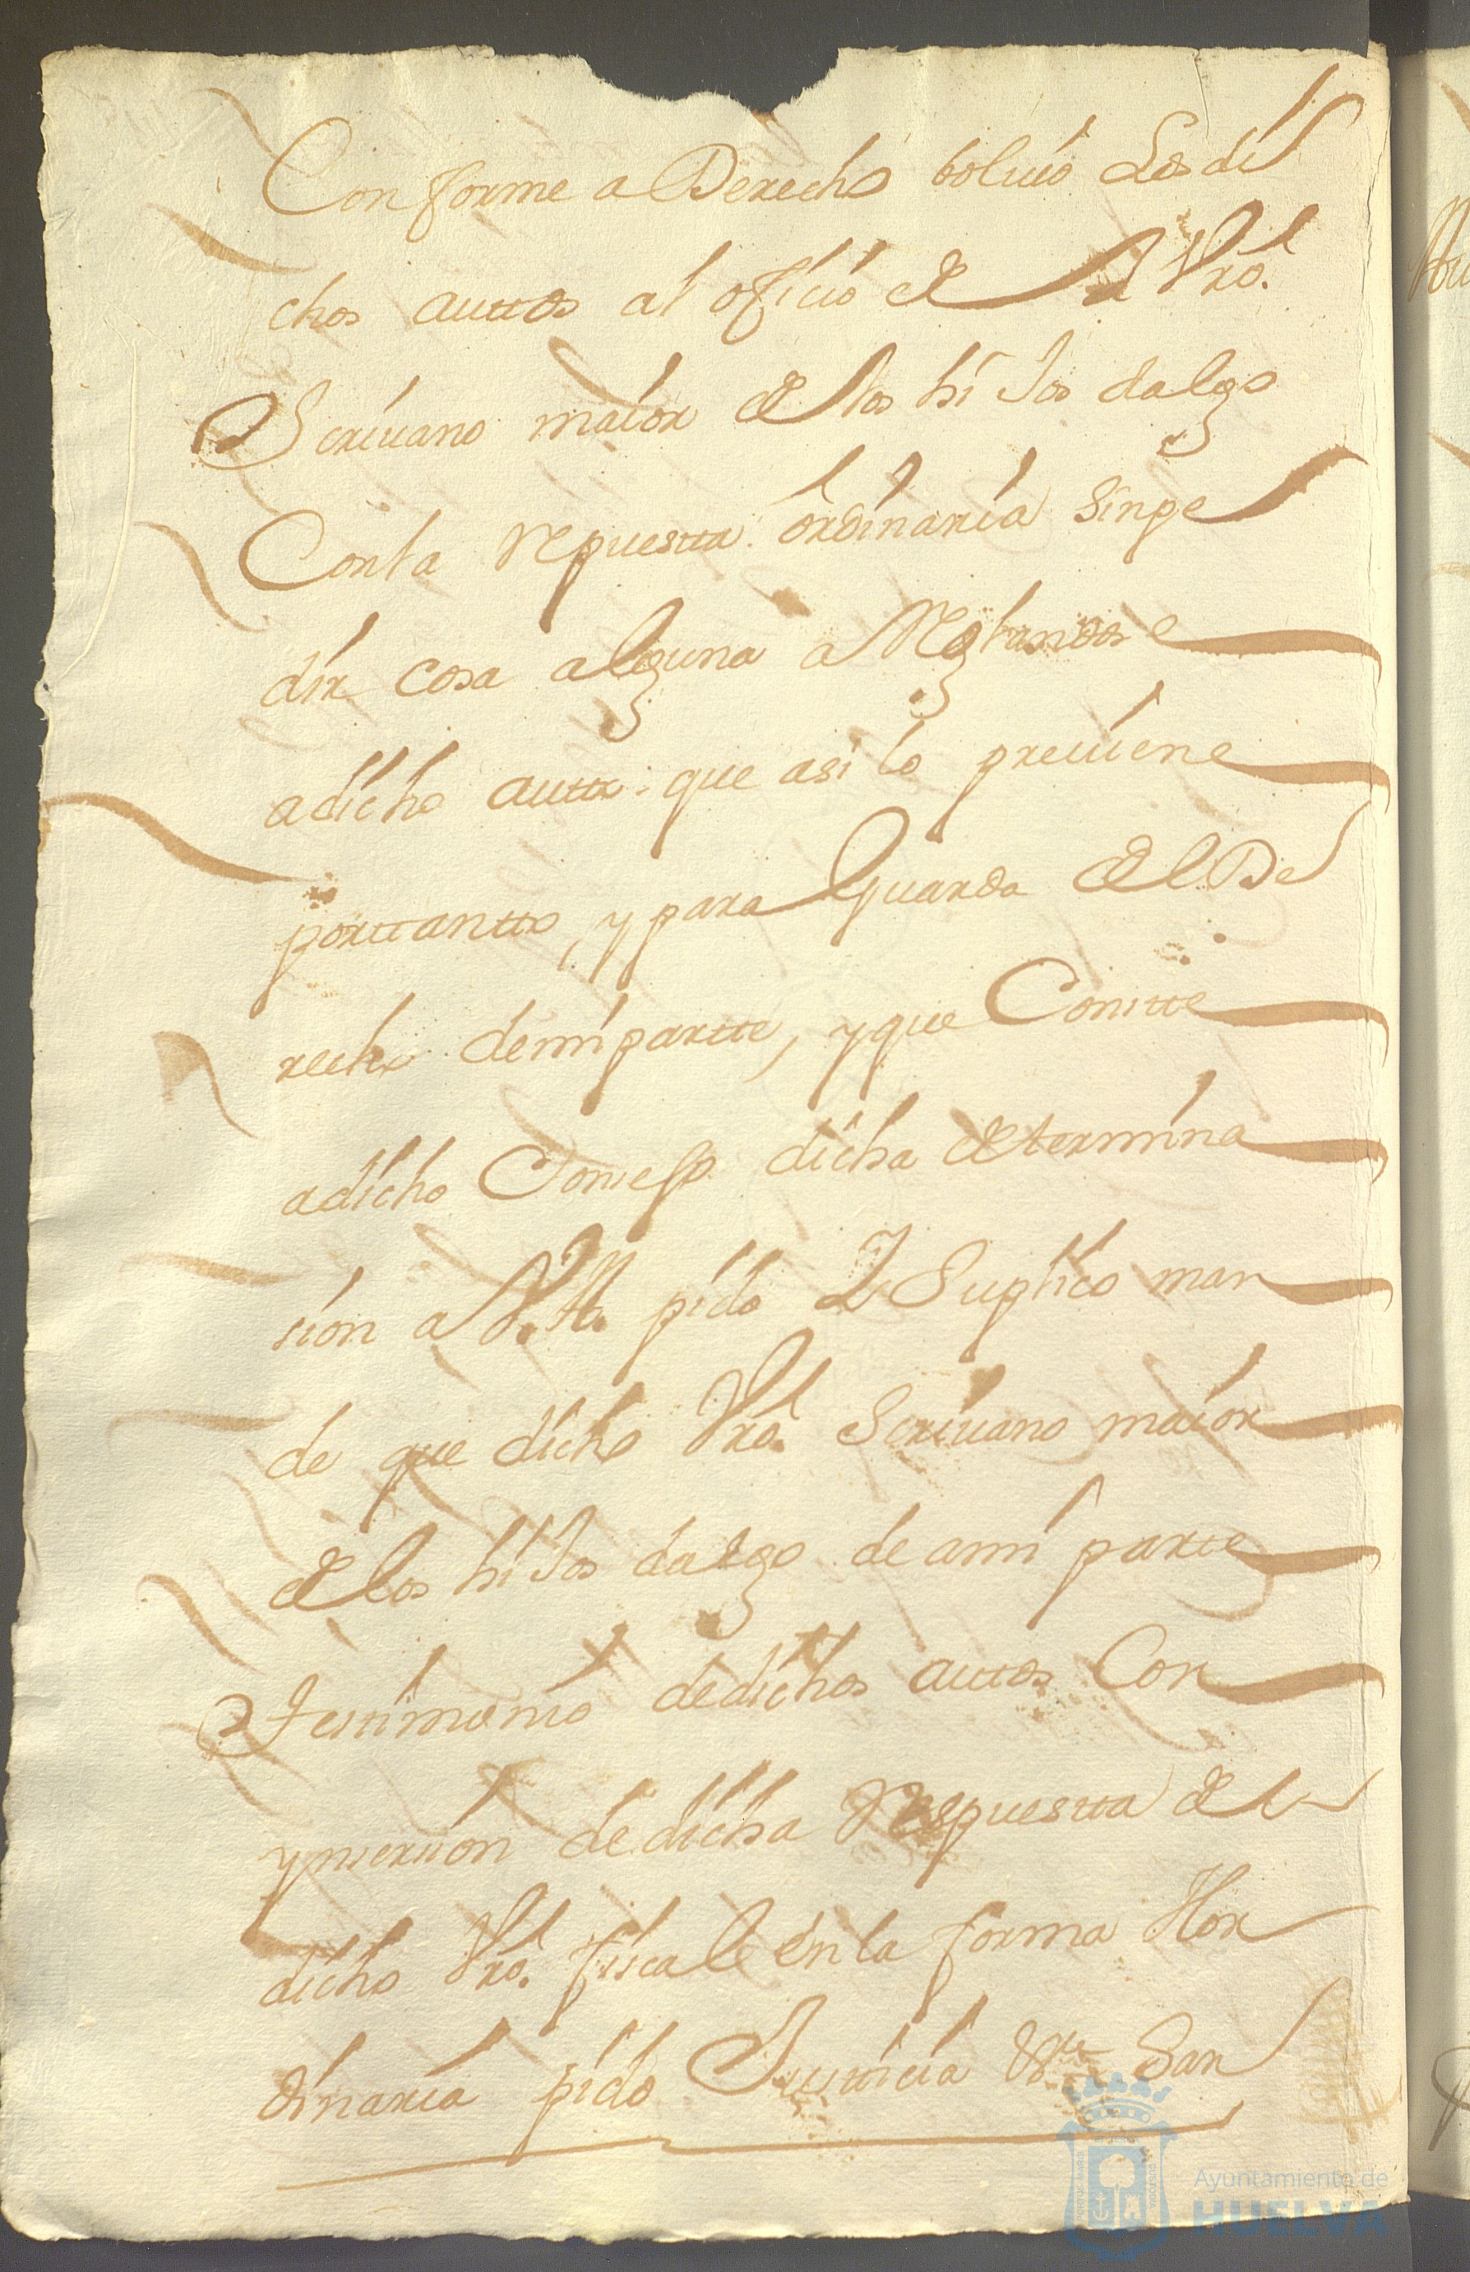 Conforme a Derecho boluio Los di
chos auttos al oficio de el Vro.
Scriuano maior de los hi Jos dalgo
Con la repuestta ordinaria sin pe
dir cosa alguna a Reglandose
a dicho autto que asi lo preuiene
por ttantto, y para Guarda de el De
recho de mi partte, y que Constte
a dicho Consejo dicha determina
sion a V.A. pido Y Suplico man
de que dicho Vro. Scriuano maior
de los hi Jos dalgo de a mi partte
testimonio de dichos auttos Con
ynsersion de dicha respuestta de el
dicho Vro. fiscal en la forma Hor
dinaria pido Justticia San
Ayuntamiento de
HUELVA